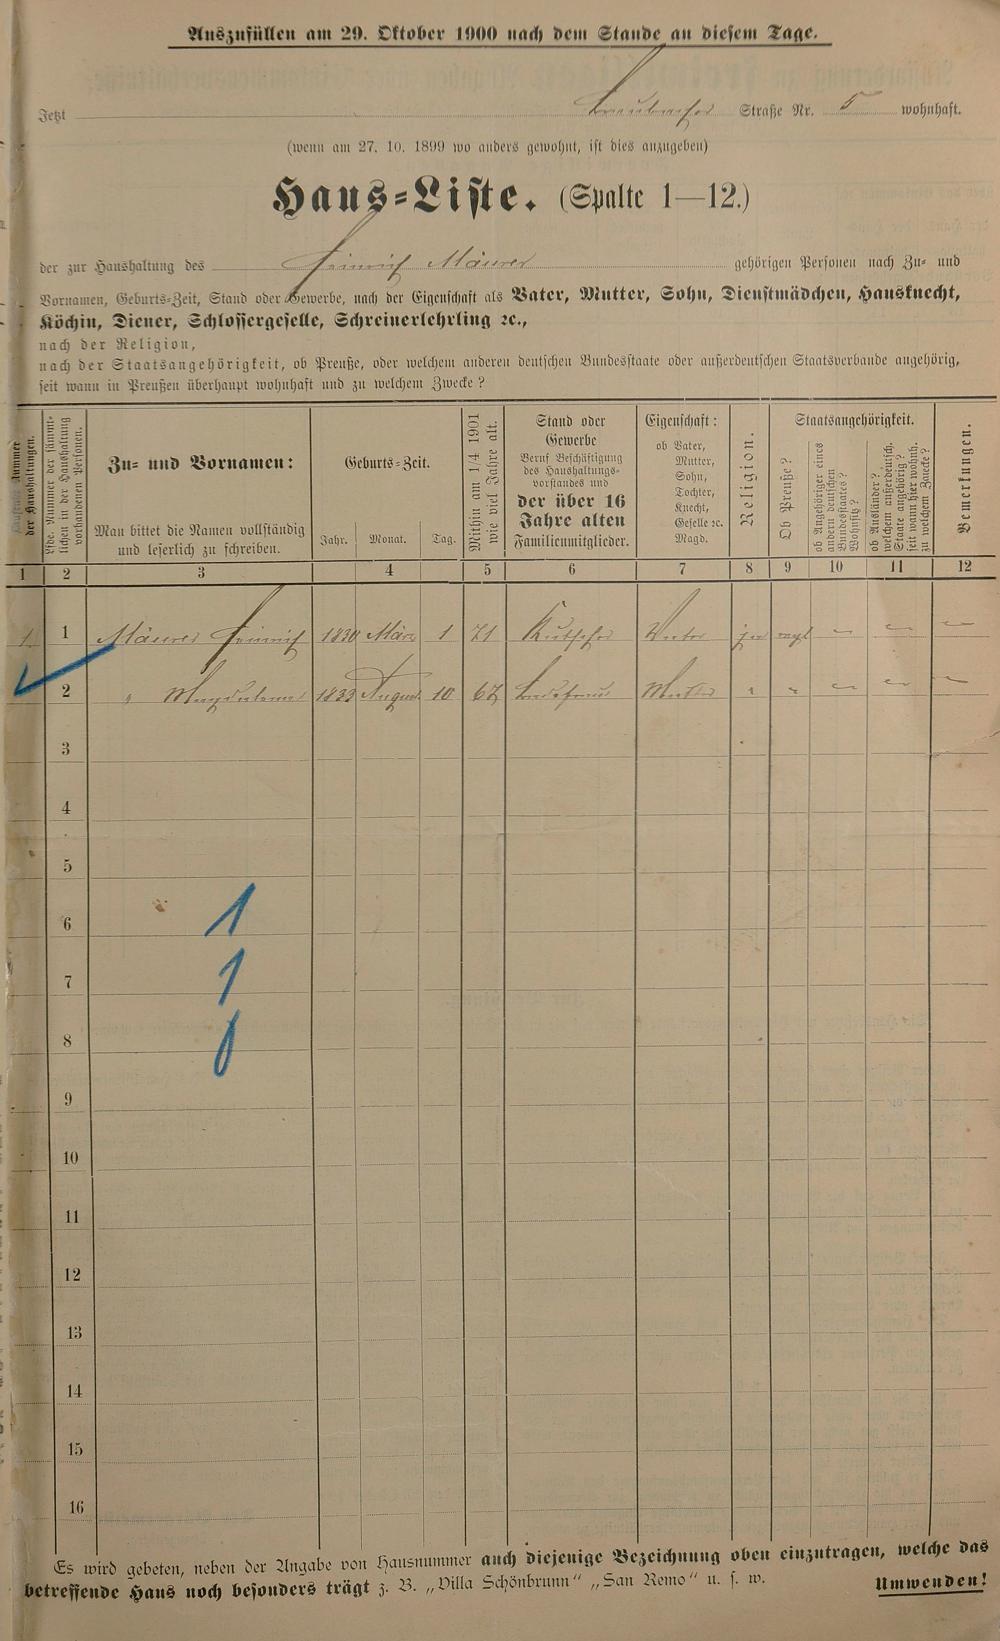 Auszufüllen am 29. Oktober 1900 nach dem Stande an diesem Tage.
Jetzt Straße Nr. 5 wohnhaft.
(wenn am 27. 10. 1899 wo anders gewohnt, ist dies anzugeben)
Haus-Liste. (Spalte 1—12.)
der zur Haushaltung des Heinrich Mäurer gehörigen Personen nach Zu- und
Vornamen, Geburts-Zeit, Stand oder Gewerbe, nach der Eigenschaft als Vater, Mutter, Sohn, Dienstmädchen, Hausknecht,
Köchin, Diener, Schlossergeselle, Schreinerlehrling ꝛc.,
nach der Religion,
nach der Staatsangehörigkeit, ob Preuße, oder welchem anderen deutschen Bundesstaate oder außerdeutschen Staatsverbande angehörig,
seit wann in Preußen überhaupt wohnhaft und zu welchem Zwecke?
Laufende Nummer
der Haushaltungen.
Lfde. Nummer der sämmt-
lichen in der Haushaltung
vorhandenen Personen.
Zu- und Vornamen:
Man bittet die Namen vollständig
und leserlich zu schreiben.
Geburts-Zeit.
Jahr. Monat. Tag.
Mithin am 1/4 1901
wie viel Jahre alt.
Stand oder
Gewerbe
Beruf Beschäftigung
des Haushaltungs-
vorstandes und
der über 16
Jahre alten
Familienmitglieder.
Eigenschaft:
ob Vater,
Mutter,
Sohn,
Tochter,
Knecht,
Geselle ꝛc.
Magd.
Religion.
Staatsangehörigkeit.
Ob Preuße?
ob Angehöriger eines
andern deutschen
Bundesstaates?
Wohnsitz?
ob Ausländer?
welchem außerdeutsch.
Staate angehörig?
seit wann hier wohnh.
zu welchem Zwecke?
Bemerkungen.
1 2 3 4 5 6 7 8 9 10 11 12
1. 1 Mäurer Heinrich 1830 März 1 71 Kutscher Vater — — —
2 " Magdalena 1833 August 10 67 Mutter " " — — —
3
4
5
6 1
7 1
8 0
9
10
11
12
13
14
15
16
Es wird gebeten, neben der Angabe von Hausnummer auch diejenige Bezeichnung oben einzutragen, welche das
betreffende Haus noch besonders trägt z. B. „Villa Schönbrunn“ „San Remo“ u. s. w.
Umwenden!